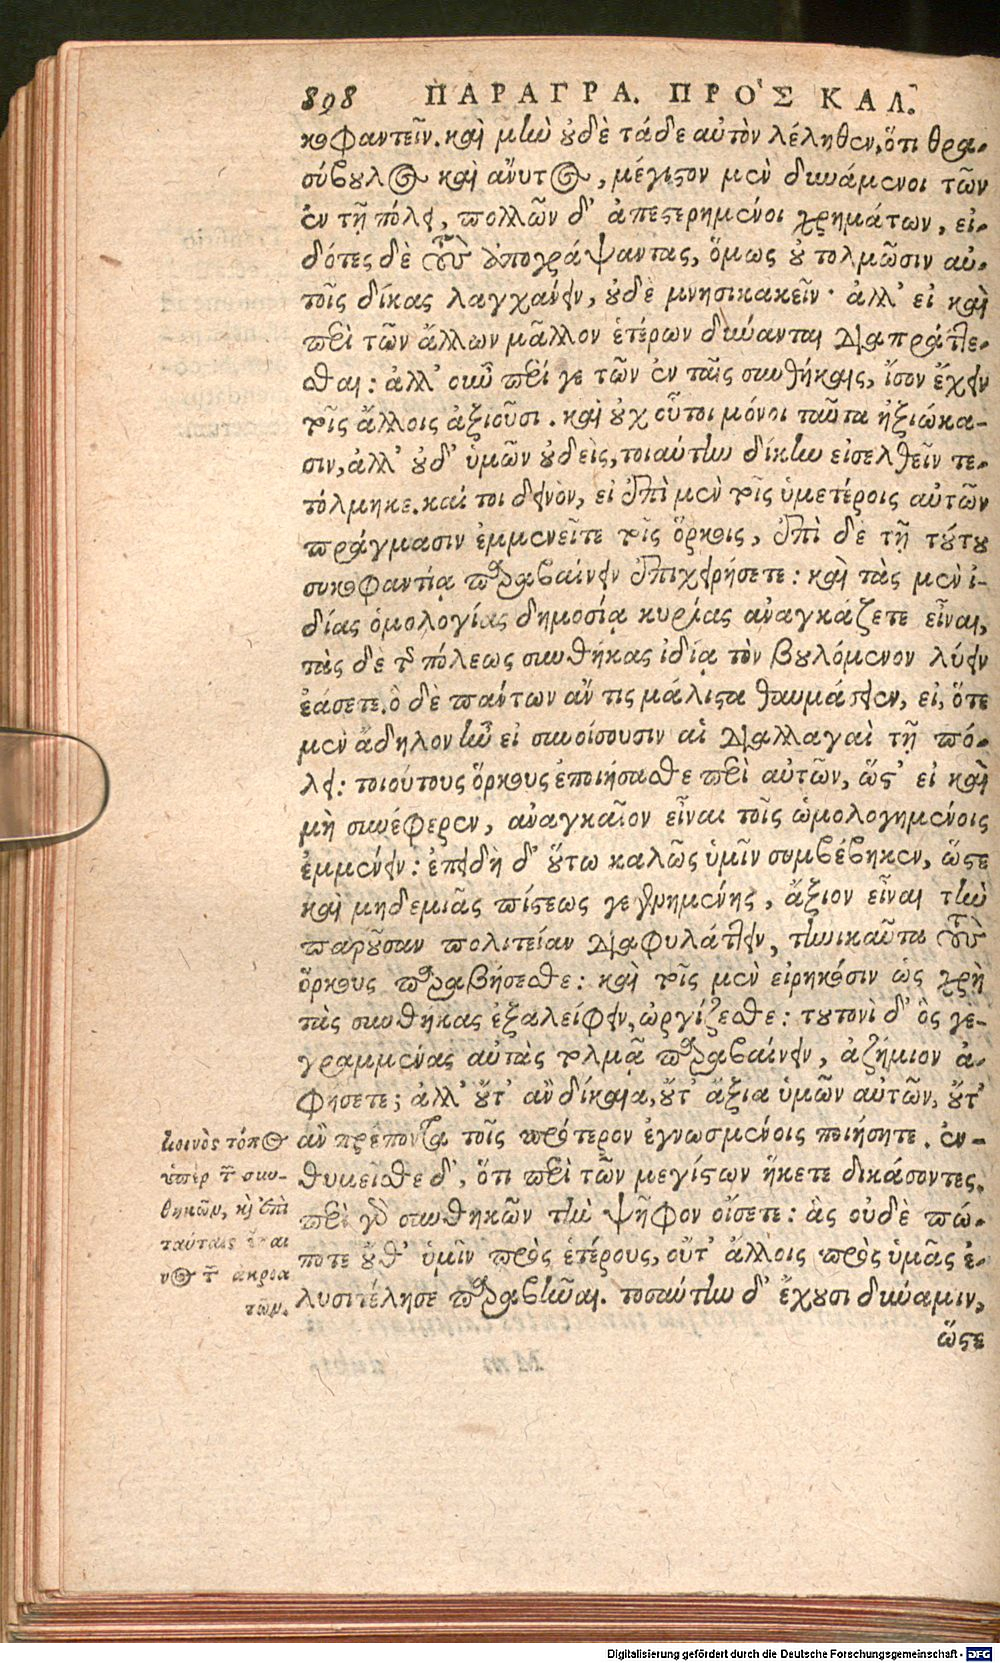 898 ΠΑΡΑΓΡΑ. ΠΡΟ'Σ ΚΑΛ.
κοφαντεῖν. καὶ μὴν οὐδὲ τάδε αὐτὸν λέληθεν, ὅτι θρα-
σύβουλος καὶ ἄνυτος, μέγιστον μὲν δυνάμενοι τῶν
ἐν τῇ πόλει, πολλῶν δ' ἀπεστερημένοι χρημάτων, εἰ-
δότες δὲ τοὺς ἀπογράψαντας, ὅμως οὐ τολμῶσιν αὐ-
τοῖς δίκας λαγχάνειν, οὐδὲ μνησικακεῖν· ἀλλ' εἰ καὶ
περὶ τῶν ἄλλων μᾶλλον ἑτέρων δύνανται διαπράττε-
σθαι: ἀλλ' οὖν περί γε τῶν ἐν ταῖς συνθήκαις, ἴσον ἔχειν
τοῖς ἄλλοις ἀξιοῦσι. καὶ οὐχ οὗτοι μόνοι ταῦτα ἠξιώκα-
σιν, ἀλλ' οὐδ' ὑμῶν οὐδεὶς, τοιαύτην δίκην εἰσελθεῖν τε-
τόλμηκε. καί τοι δεινὸν, εἰ ἐπὶ μὲν τοῖς ὑμετέροις αὐτῶν
πράγμασιν ἐμμενεῖτε τοῖς ὅρκοις, ἐπὶ δὲ τῇ τούτου
συκοφαντίᾳ παραβαίνειν ἐπιχειρήσετε: καὶ τὰς μὲν ἰ-
δίας ὁμολογίας δημοσίᾳ κυρίας ἀναγκάζετε εἶναι,
τὰς δὲ τῆς πόλεως συνθήκας ἰδίᾳ τὸν βουλόμενον λύειν
ἐάσετε. ὃ δὲ πάντων ἄν τις μάλιστα θαυμάσειεν, εἰ, ὅτε
μὲν ἄδηλον ἦν εἰ συνοίσουσιν αἱ διαλλαγαὶ τῇ πό-
λει: τοιούτους ὅρκους ἐποιήσασθε περὶ αὐτῶν, ὥστ' εἰ καὶ
μὴ συνέφερεν, ἀναγκαῖον εἶναι τοῖς ὡμολογημένοις
ἐμμένειν: ἐπειδὴ δ' οὕτω καλῶς ὑμῖν συμβέβηκεν, ὥστε
καὶ μηδεμιᾶς πίστεως γεγενημένης, ἄξιον εἶναι τὴν
παροῦσαν πολιτείαν διαφυλάττειν, τηνικαῦτα τοὺς
ὅρκους παραβήσεσθε: καὶ τοῖς μὲν εἰρηκόσιν ὡς χρὴ
τὰς συνθήκας ἐξαλείφειν, ὠργίζεσθε: τουτονὶ δ' ὃς γε-
γραμμένας αὐτὰς τολμᾷ παραβαίνειν, ἀζήμιον ἀ-
φήσετε; ἀλλ' οὔτ' ἂν δίκαια, οὔτ' ἄξια ὑμῶν αὐτῶν, οὔτ'
ἂν πρέποντα τοῖς πρότερον ἐγνωσμένοις ποιήσητε. ἐν-
θυμεῖσθε δ', ὅτι περὶ τῶν μεγίστων ἥκετε δικάσοντες.
περὶ γὰρ συνθηκῶν τὴν ψῆφον οἴσετε: ἃς οὐδὲ πώ-
ποτε οὔθ' ὑμῖν πρὸς ἑτέρους, οὔτ' ἄλλοις πρὸς ὑμᾶς ἐ-
λυσιτέλησε παραβῆναι. τοσαύτην δ' ἔχουσι δύναμιν,
ὥστε
κοινὸς τόπος
ὑπὲρ τῶν συν-
θηκῶν, καὶ ἐπὶ
ταύταις ἔπαι
νος τῶν ἀκροα
τῶν.
Digitalisierung gefördert durch die Deutsche Forschungsgemeinschaft - DFG